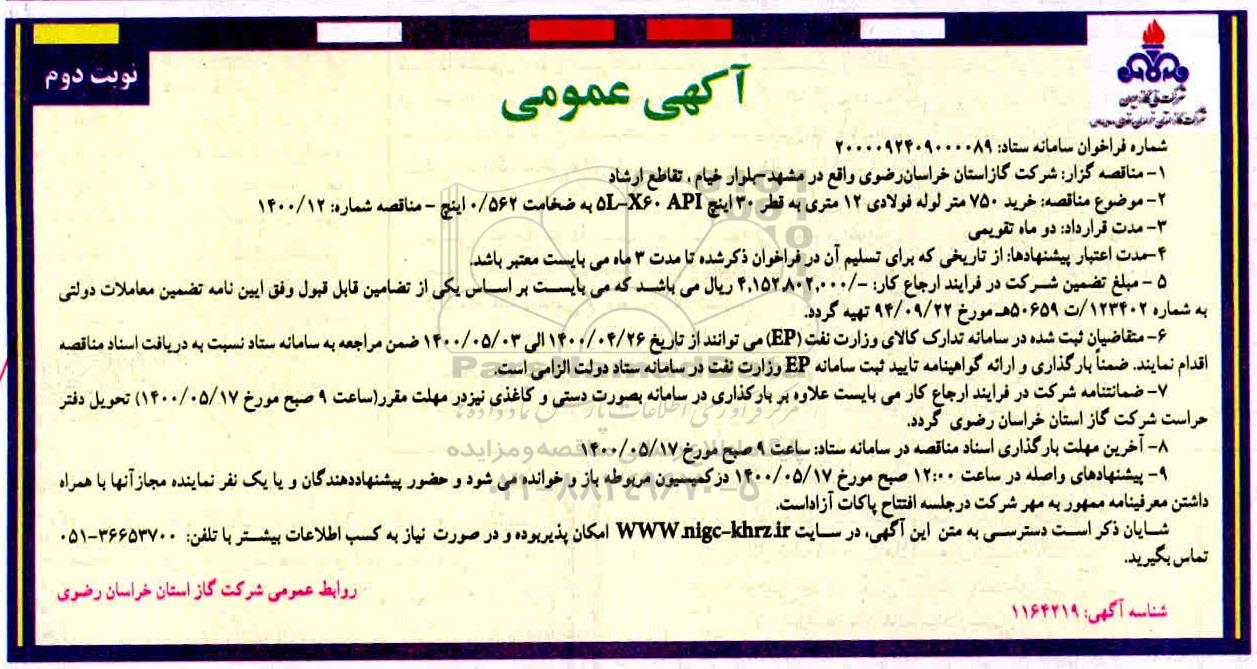 نوبت دوم
آگهی عمومی
شرکت ملی گاز ایران
شماره فراخوان سامانه ستاد: ۲۰۰۰۰۹۲۴۰۹۰۰۰۰۸۹
۱- مناقصه گزار: شرکت گازاستان خراسان‌رضوی واقع در مشهد-بلوار خیام ، تقاطع ارشاد
۲- موضوع مناقصه: خرید ۷۵۰ متر لوله فولادی ۱۲ متری به قطر ۳۰ اینچ ۵L-X۶۰ API به ضخامت ۰/۵۶۲ اینچ - مناقصه شماره: ۱۴۰۰/۱۲
۳- مدت قرارداد: دو ماه تقویمی
۴-مدت اعتبار پیشنهادها: از تاریخی که برای تسلیم آن در فراخوان ذکرشده تا مدت ۳ ماه می بایست معتبر باشد.
۵ - مبلغ تضمین شرکت در فرایند ارجاع کار: -/۴,۱۵۲,۸۰۲,۰۰۰ ریال می باشد که می بایست بر اساس یکی از تضامین قابل قبول وفق آیین نامه تضمین معاملات دولتی
به شماره ۱۲۳۴۰۲/ت ۵۰۶۵۹هـ مورخ ۹۴/۰۹/۲۲ تهیه گردد.
۶- متقاضیان ثبت شده در سامانه تدارک کالای وزارت نفت (EP) می توانند از تاریخ ۱۴۰۰/۰۴/۲۶ الی ۱۴۰۰/۰۵/۰۳ ضمن مراجعه به سامانه ستاد نسبت به دریافت اسناد مناقصه
اقدام نمایند. ضمناً بارگذاری و ارائه گواهینامه تایید ثبت سامانه EP وزارت نفت در سامانه ستاد دولت الزامی است.
۷- ضمانتنامه شرکت در فرایند ارجاع کار می بایست علاوه بر بارگذاری در سامانه بصورت دستی و کاغذی نیزدر مهلت مقرر(ساعت ۹ صبح مورخ ۱۴۰۰/۰۵/۱۷) تحویل دفتر
حراست شرکت گاز استان خراسان رضوی گردد.
۸- آخرین مهلت بارگذاری اسناد مناقصه در سامانه ستاد: ساعت ۹ صبح مورخ ۱۴۰۰/۰۵/۱۷
۹- پیشنهادهای واصله در ساعت ۱۲:۰۰ صبح مورخ ۱۴۰۰/۰۵/۱۷ درکمیسیون مربوطه باز و خوانده می شود و حضور پیشنهاددهندگان و یا یک نفر نماینده مجازآنها با همراه
داشتن معرفینامه ممهور به مهر شرکت درجلسه افتتاح پاکات آزاداست.
شایان ذکر است دسترسی به متن این آگهی، در سایت WWW.nigc-khrz.ir امکان پذیربوده و در صورت نیاز به کسب اطلاعات بیشتر با تلفن: ۳۶۶۵۳۷۰۰-۰۵۱
تماس بگیرید.
روابط عمومی شرکت گاز استان خراسان رضوی
شناسه آگهی: ۱۱۶۴۲۱۹